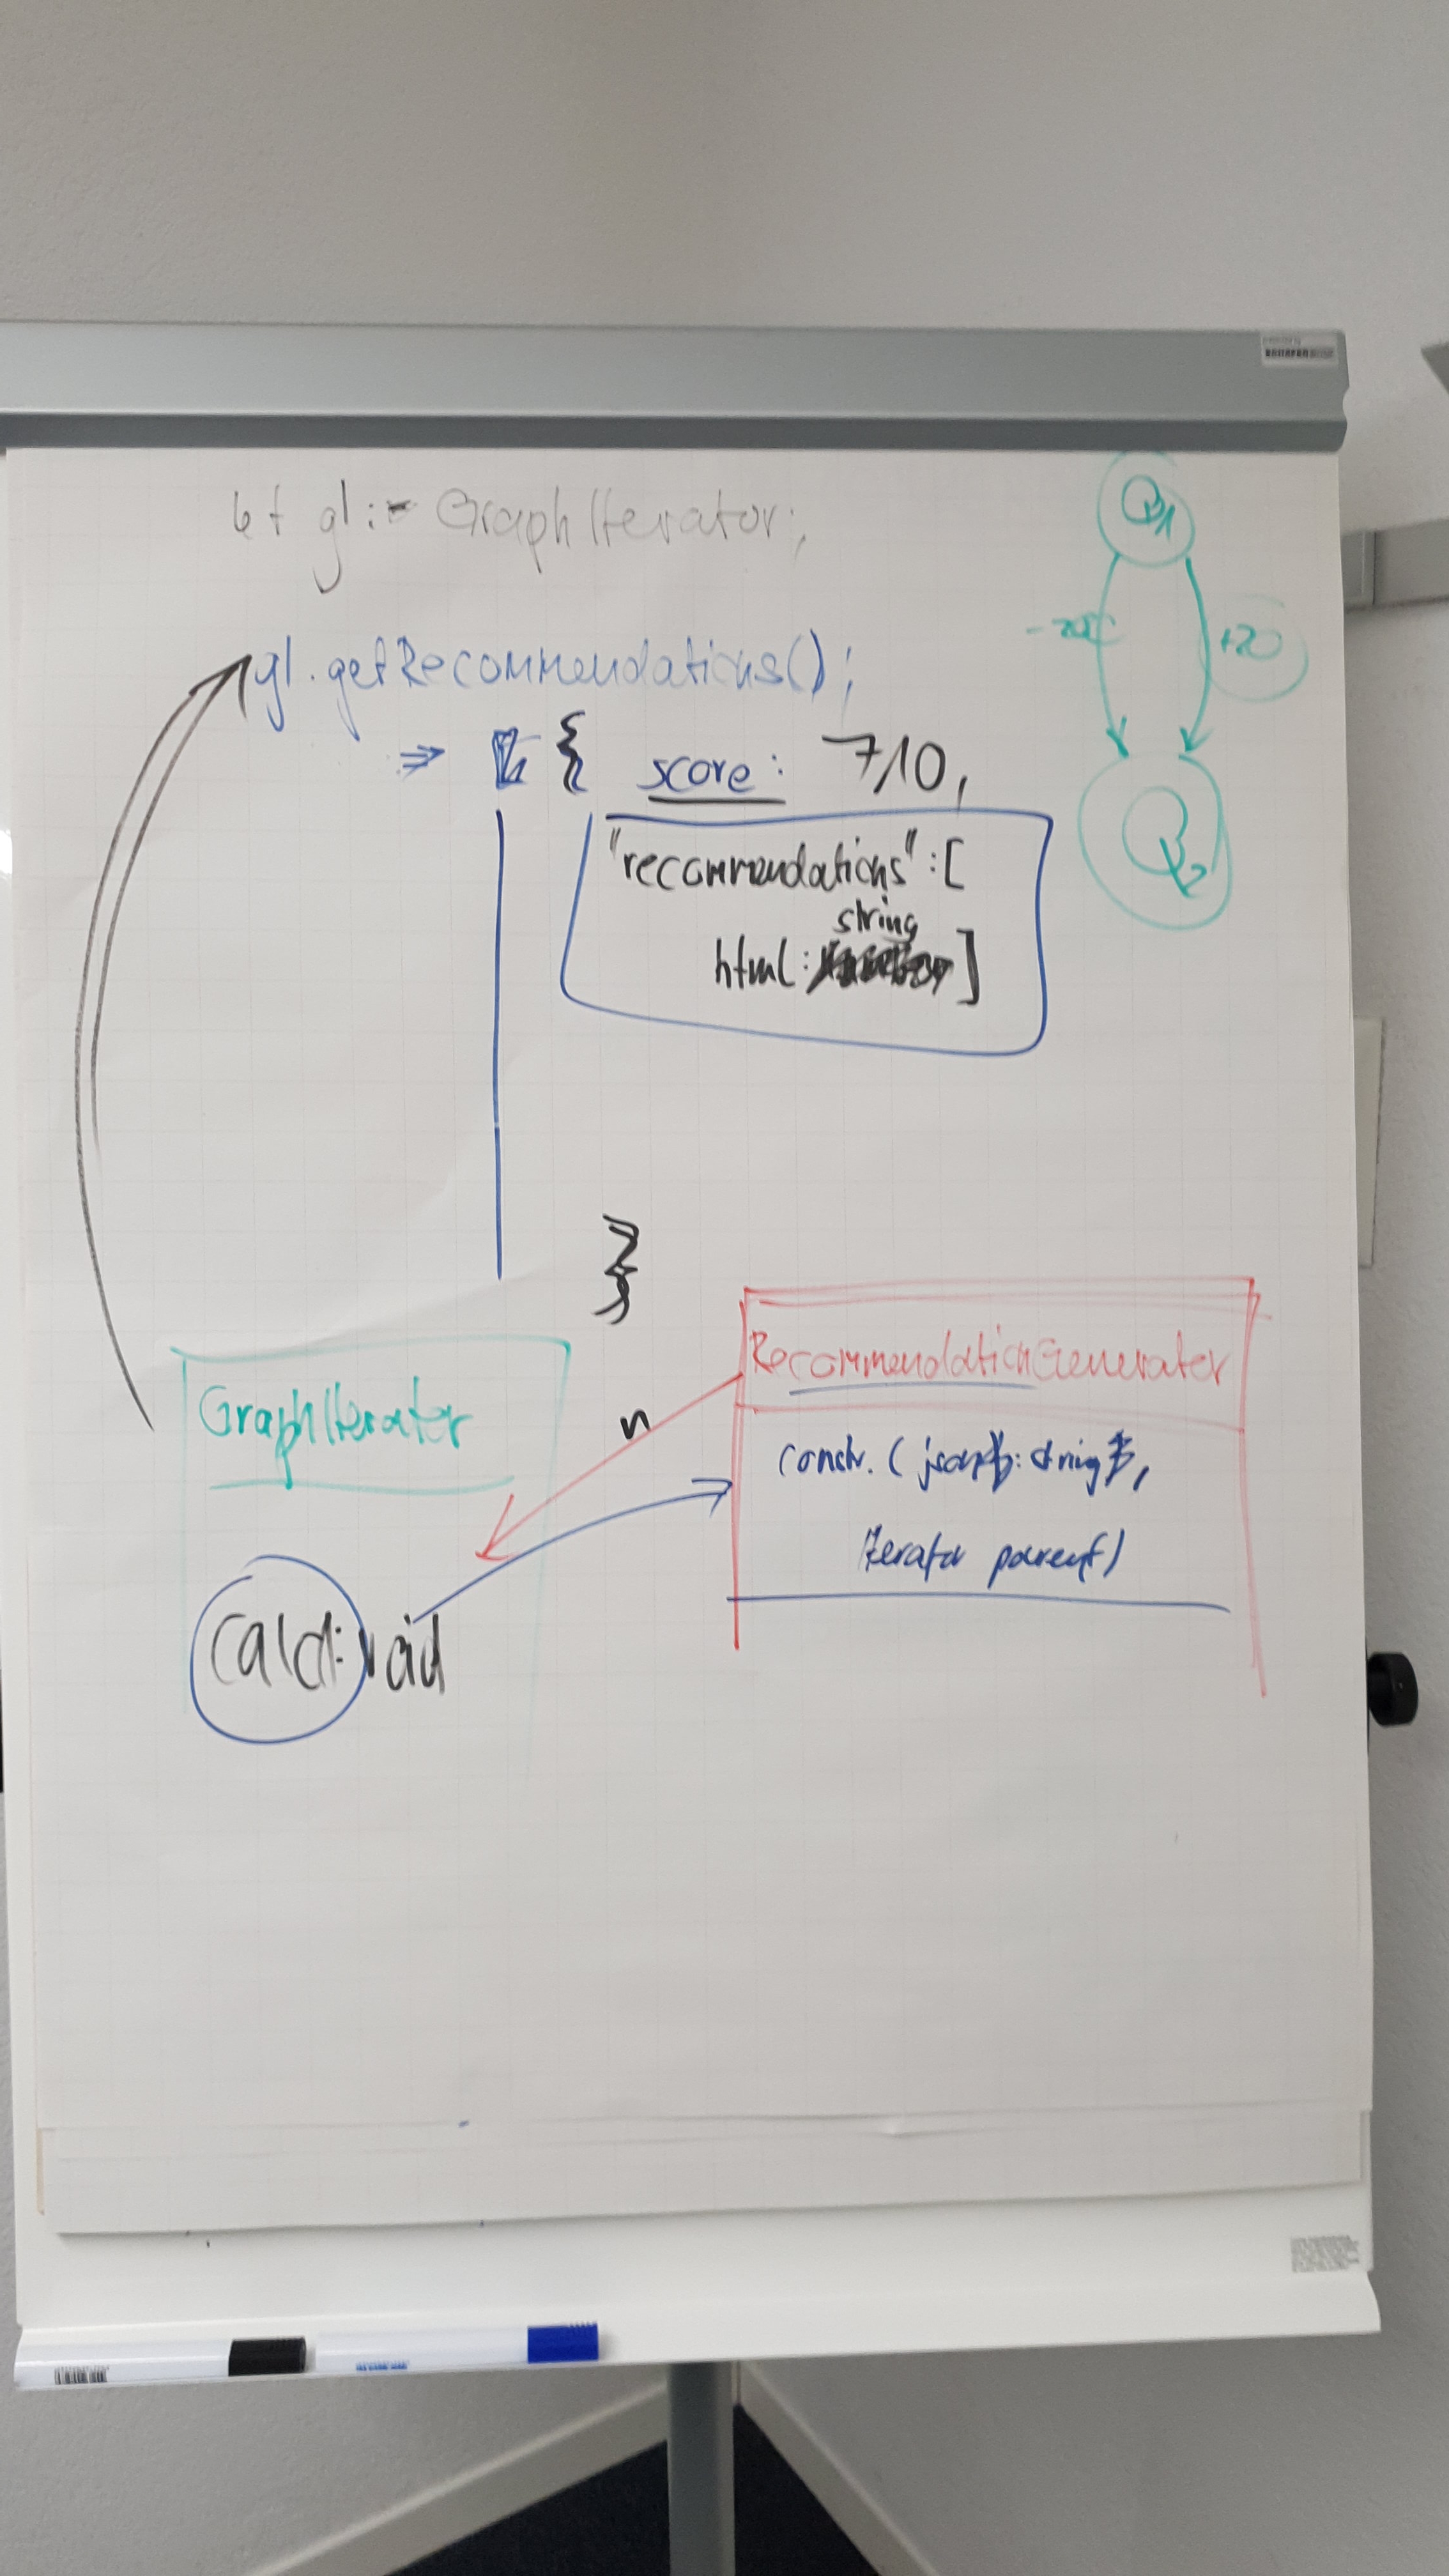 let gI := GraphIterator;
gI.getRecommendations();
⇒ { score: 7/10,
"recommendations" : [
string
html: ]
}
Q1
+20
Q2
GraphIterator
n
Calc(): void
RecommendationGenerator
constr. ( json: string,
Iterator parent)